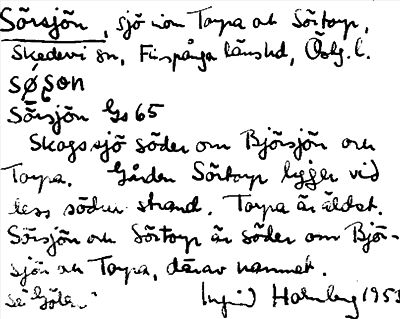 Sörsjön, sjö inom Torpa och Sörtorp,
Skedevi sn, Finspånga länshd, Östg. l.
SØSON
Sörsjön Gs 65
Skogssjö söder om Björsjön och
Torpa. Gården Sörtorp ligger vid
dess södra strand. Torpa är äldst.
Sörsjön och Sörtorp är söder om Björ-
sjön och Torpa, därav namnet.
Se
Ingrid 1953